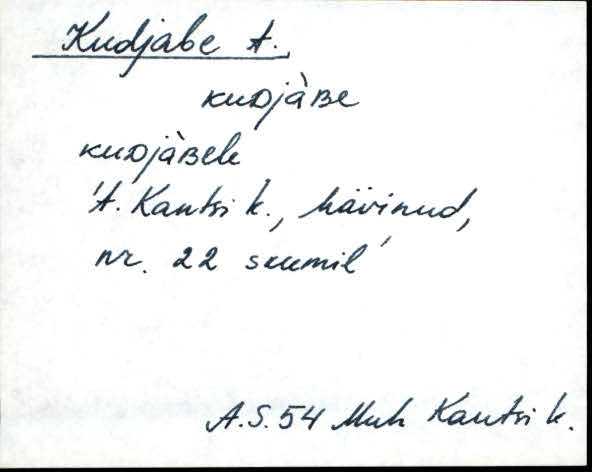 Kudjabe A.,
KUDjàBE
KUDjàBELE
'A. Kantsi k., hävinud,
nr. 22 skeemil'
A.S. 54 Muh Kantsi k.